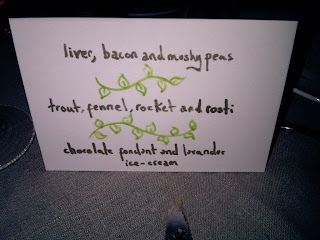 liver, bacon and mushy peas
trout, fennel, rocket and rosti
chocolate fondant and lavander
ice-cream